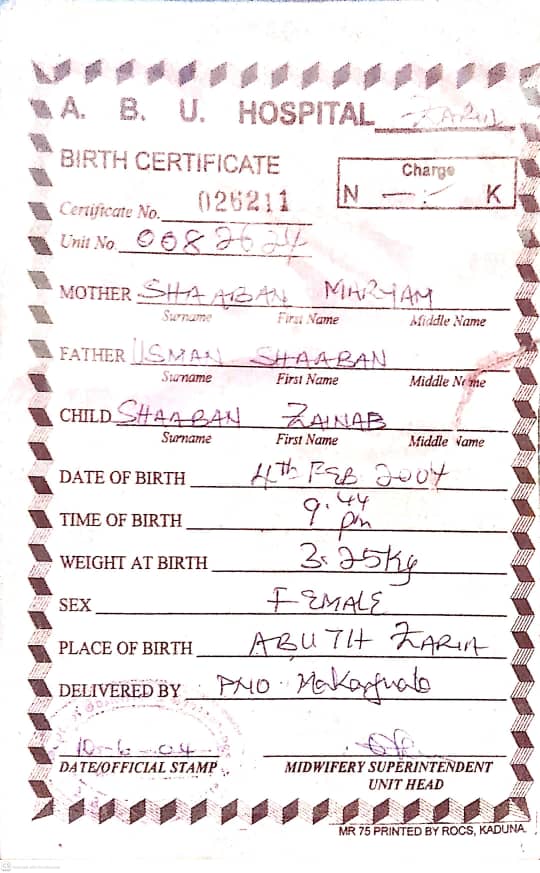 A. B. U. HOSPITAL ZARIA
BIRTH CERTIFICATE
Charge
N — : K
Certificate No. 026211
Unit No. 0082624
MOTHER SHAABAN MARYAM
Surname First Name Middle Name
FATHER USMAN SHAABAN
Surname First Name Middle Name
CHILD SHAABAN ZAINAB
Surname First Name Middle Name
DATE OF BIRTH 4th FEB 2004
TIME OF BIRTH 9.44 pm
WEIGHT AT BIRTH 3.25kg
SEX FEMALE
PLACE OF BIRTH ABUTH ZARIA
DELIVERED BY PNO
10-6-04
DATE/OFFICIAL STAMP
MIDWIFERY SUPERINTENDENT
UNIT HEAD
MR 75 PRINTED BY ROCS, KADUNA.